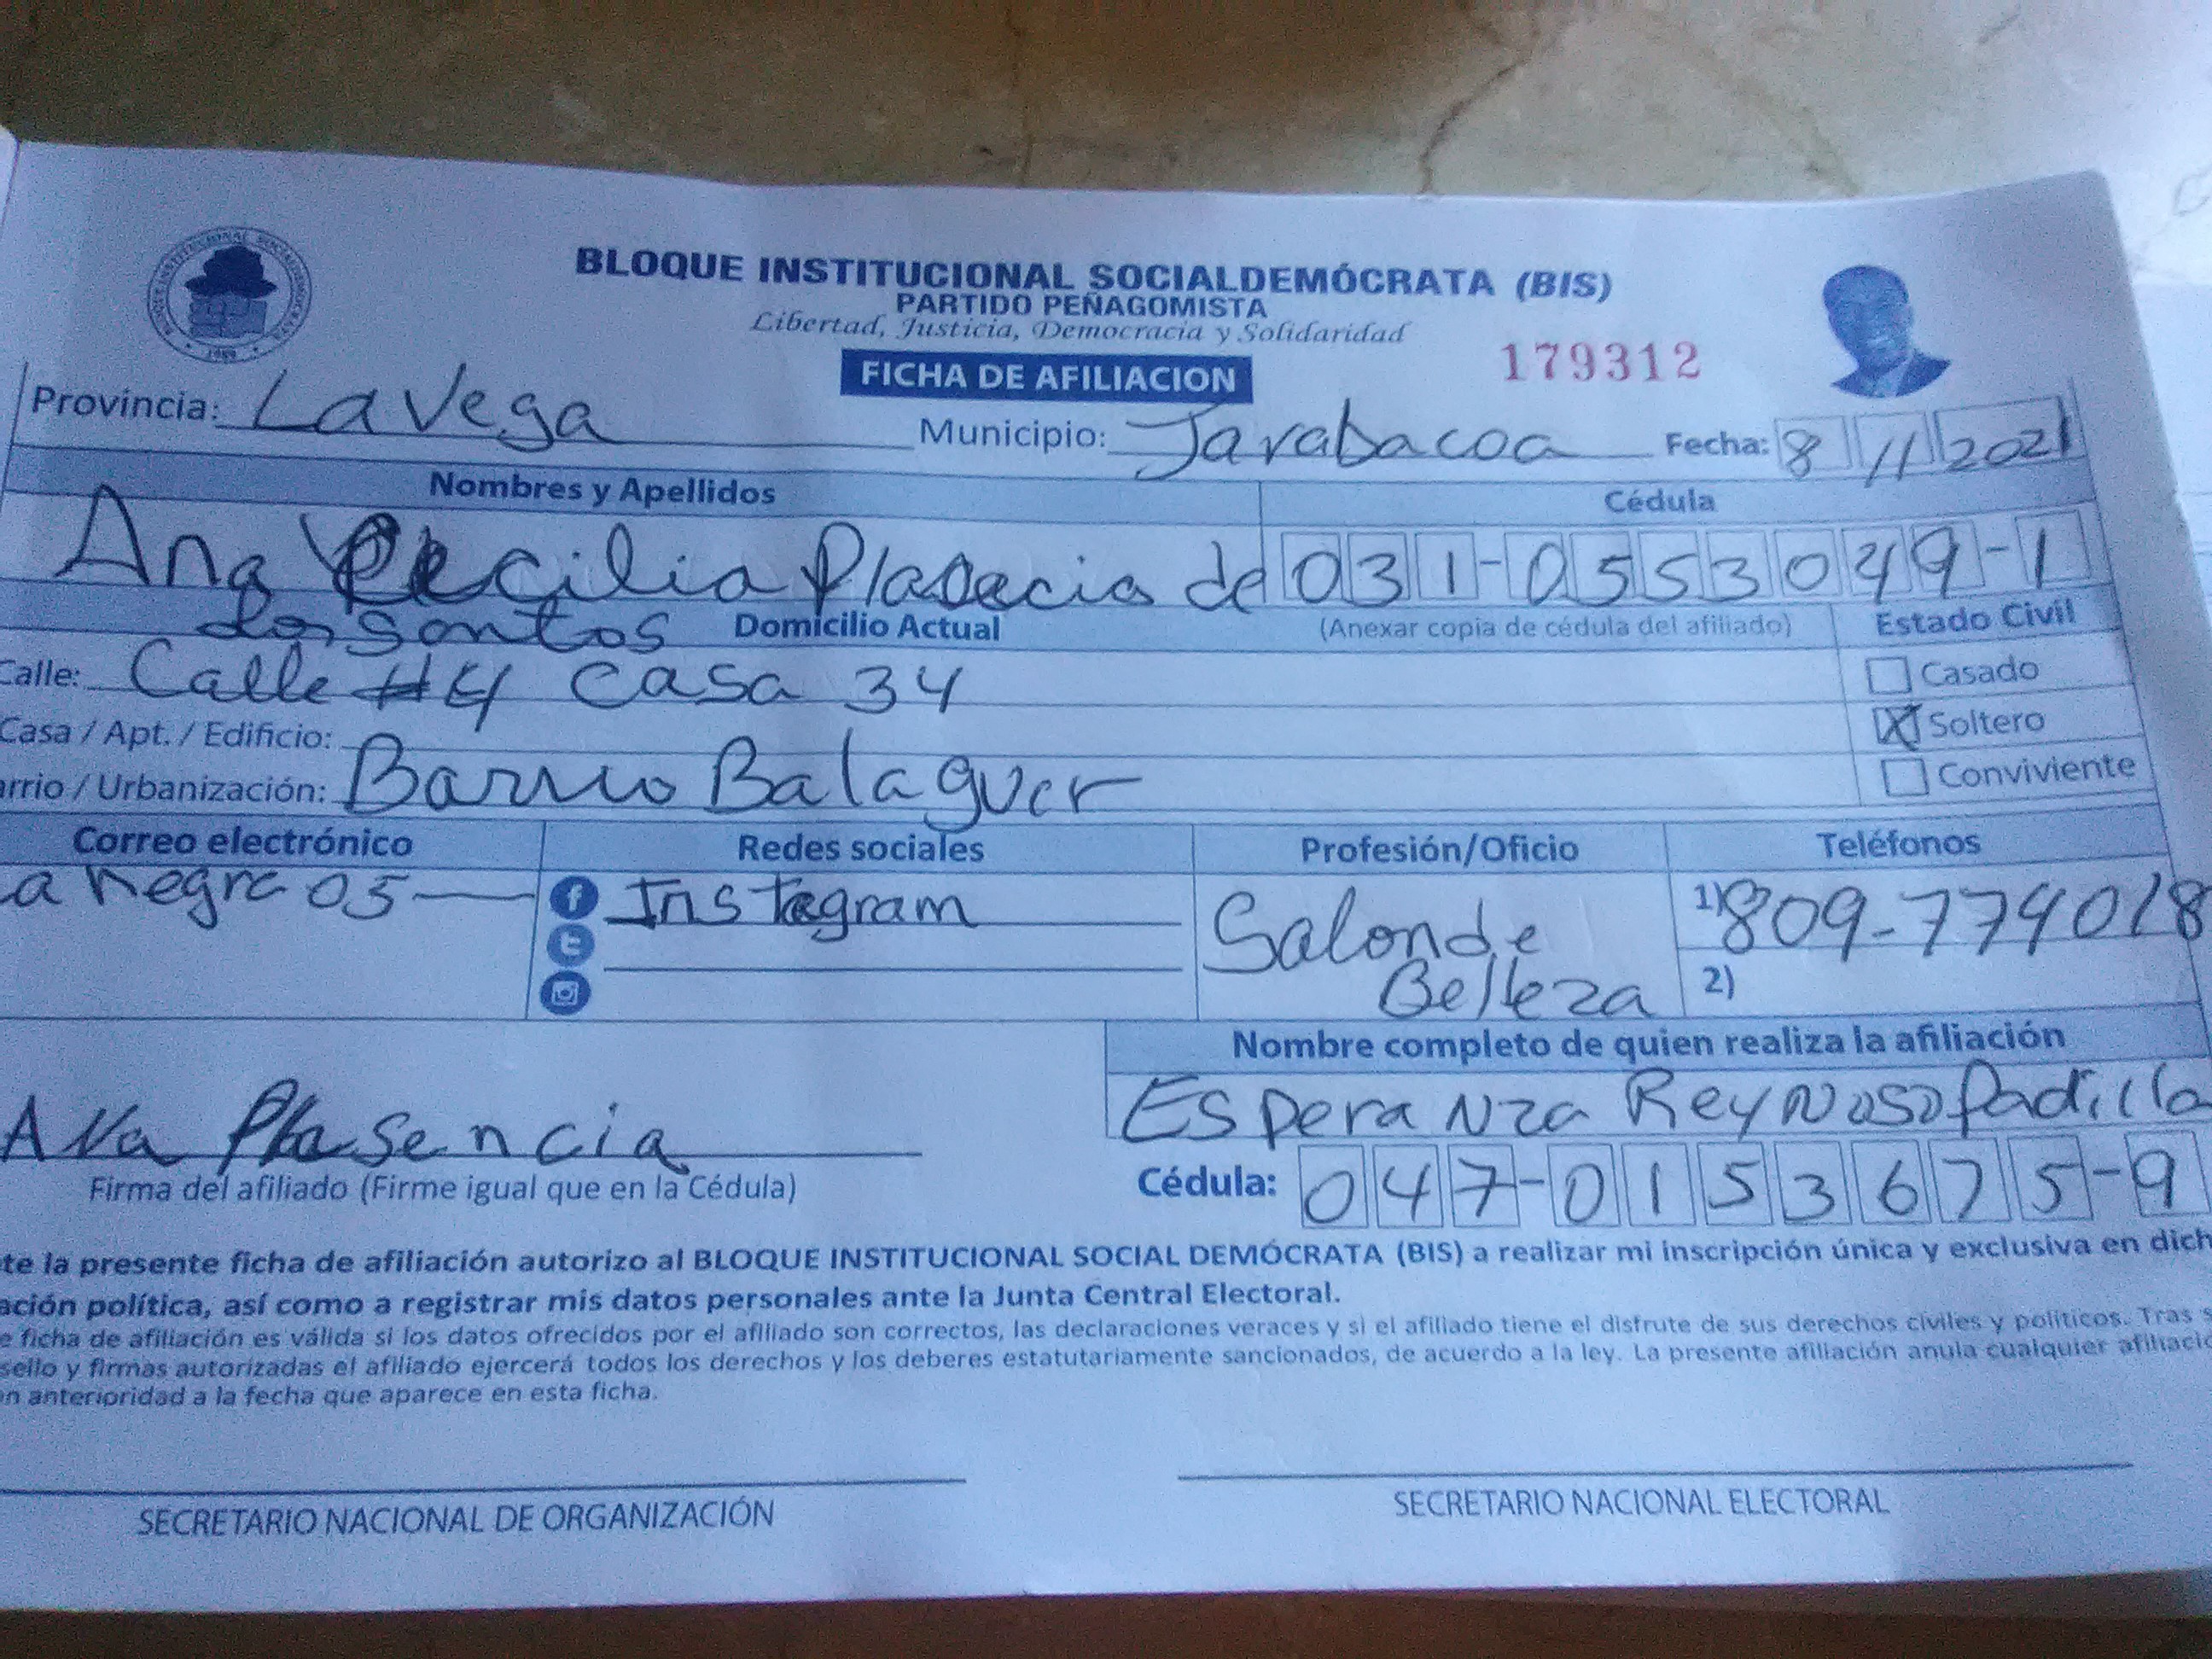 BLOQUE INSTITUCIONAL SOCIALDEMÓCRATA (BIS)
PARTIDO PEÑAGOMISTA
Libertad, Justicia, Democracia y Solidaridad
FICHA DE AFILIACION
179312
Provincia: La Vega Municipio: Jarabacoa Fecha: 8 11 2021
Nombres y Apellidos Cédula
Ana Cecilia de 031-0553049-1
los santos Domicilio Actual (Anexar copia de cédula del afiliado) Estado Civil
Calle: Calle #4 casa 34 Casado
Casa / Apt. / Edificio: X Soltero
arrio / Urbanización: Barrio Balaguer Conviviente
Correo electrónico Redes sociales Profesión/Oficio Teléfonos
a negra 05 Instagram Salon de 1) 809-779018
Belleza 2)
Nombre completo de quien realiza la afiliación
Ana Plasencia Esperanza Reynoso Padilla
Firma del afiliado (Firme igual que en la Cédula) Cédula: 047-0153675-9
te la presente ficha de afiliación autorizo al BLOQUE INSTITUCIONAL SOCIAL DEMÓCRATA (BIS) a realizar mi inscripción única y exclusiva en dich
ación política, así como a registrar mis datos personales ante la Junta Central Electoral.
e ficha de afiliación es válida si los datos ofrecidos por el afiliado son correctos, las declaraciones veraces y si el afiliado tiene el disfrute de sus derechos civiles y políticos. Tras s
sello y firmas autorizadas el afiliado ejercerá todos los derechos y los deberes estatutariamente sancionados, de acuerdo a la ley. La presente afiliación anula cualquier afiliació
n anterioridad a la fecha que aparece en esta ficha.
SECRETARIO NACIONAL DE ORGANIZACIÓN SECRETARIO NACIONAL ELECTORAL